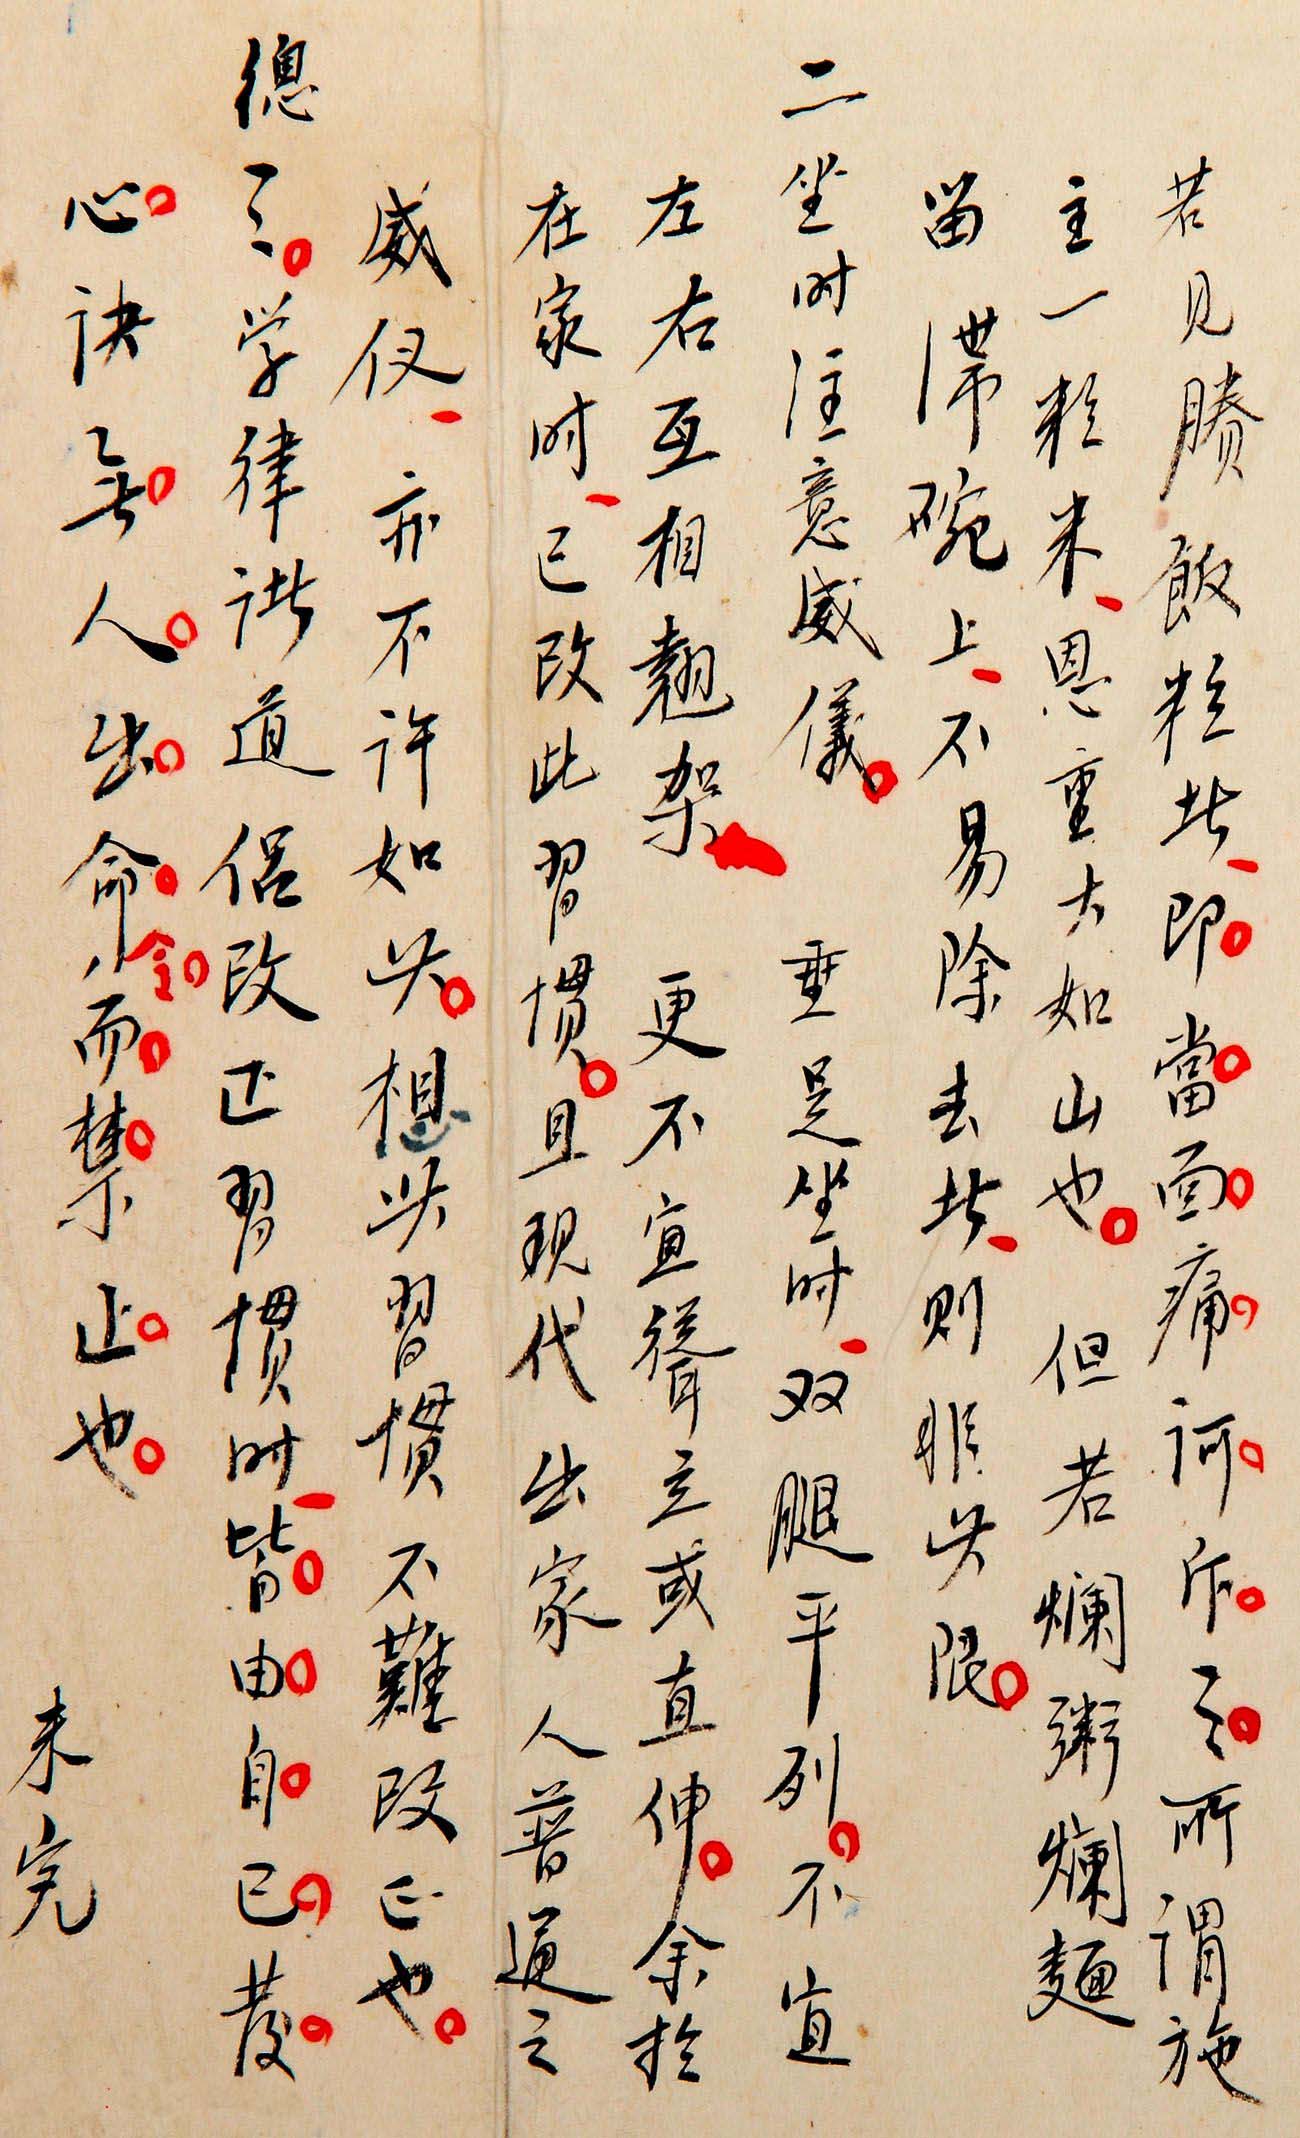 若见賸飯粒者即當面痛訶斥之所谓施
主一粒米恩重大如山也但若爛粥爛麵
留滞碗上不易除去者则非此限
二坐时注意威儀 垂足坐时双腿平列不宜
左右互相翹架 更不宜聳立或直伸余於
在家时已改此習惯且现代出家人普通之
威仪亦不许如此想此習惯不難改正也
總之学律诸道侣改正習惯时皆由自己发
心决無人出命令而禁止也
未完